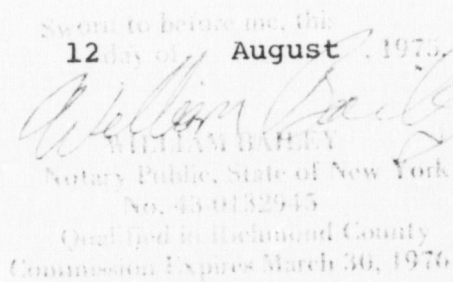 Sworn to before me, this
12 day of August, 1975.
William Bailey
WILLIAM BAILEY
Notary Public, State of New York
No. 43-0132945
Qualified in Richmond County
Commission Expires March 30, 1976